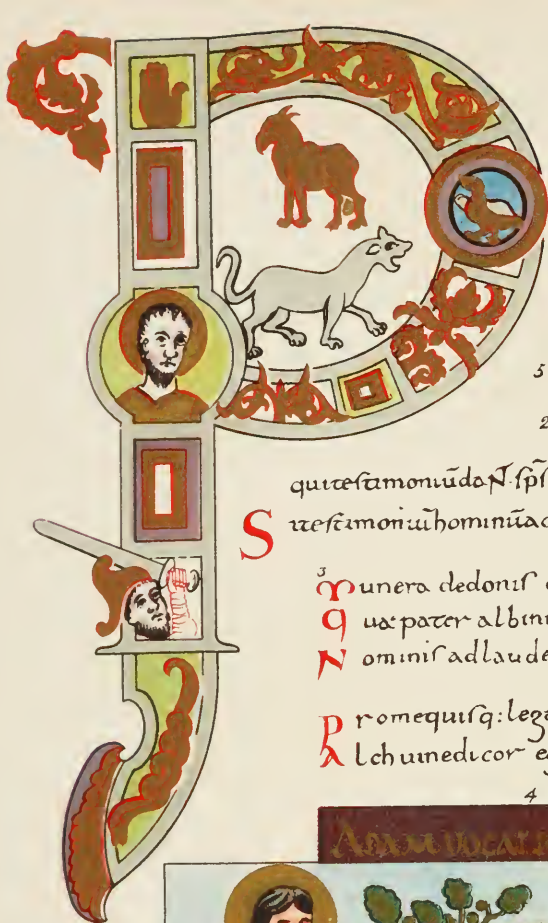 P
5
2
qui testimoniū daɴ̄ · sp̄s
Si testimoniū hominū ac
3
Munera dedonis
Quæ pater albin
Nominis ad laude
Pro me quisq: lega
Alchuine dicor e
4
ADAM VOCAT